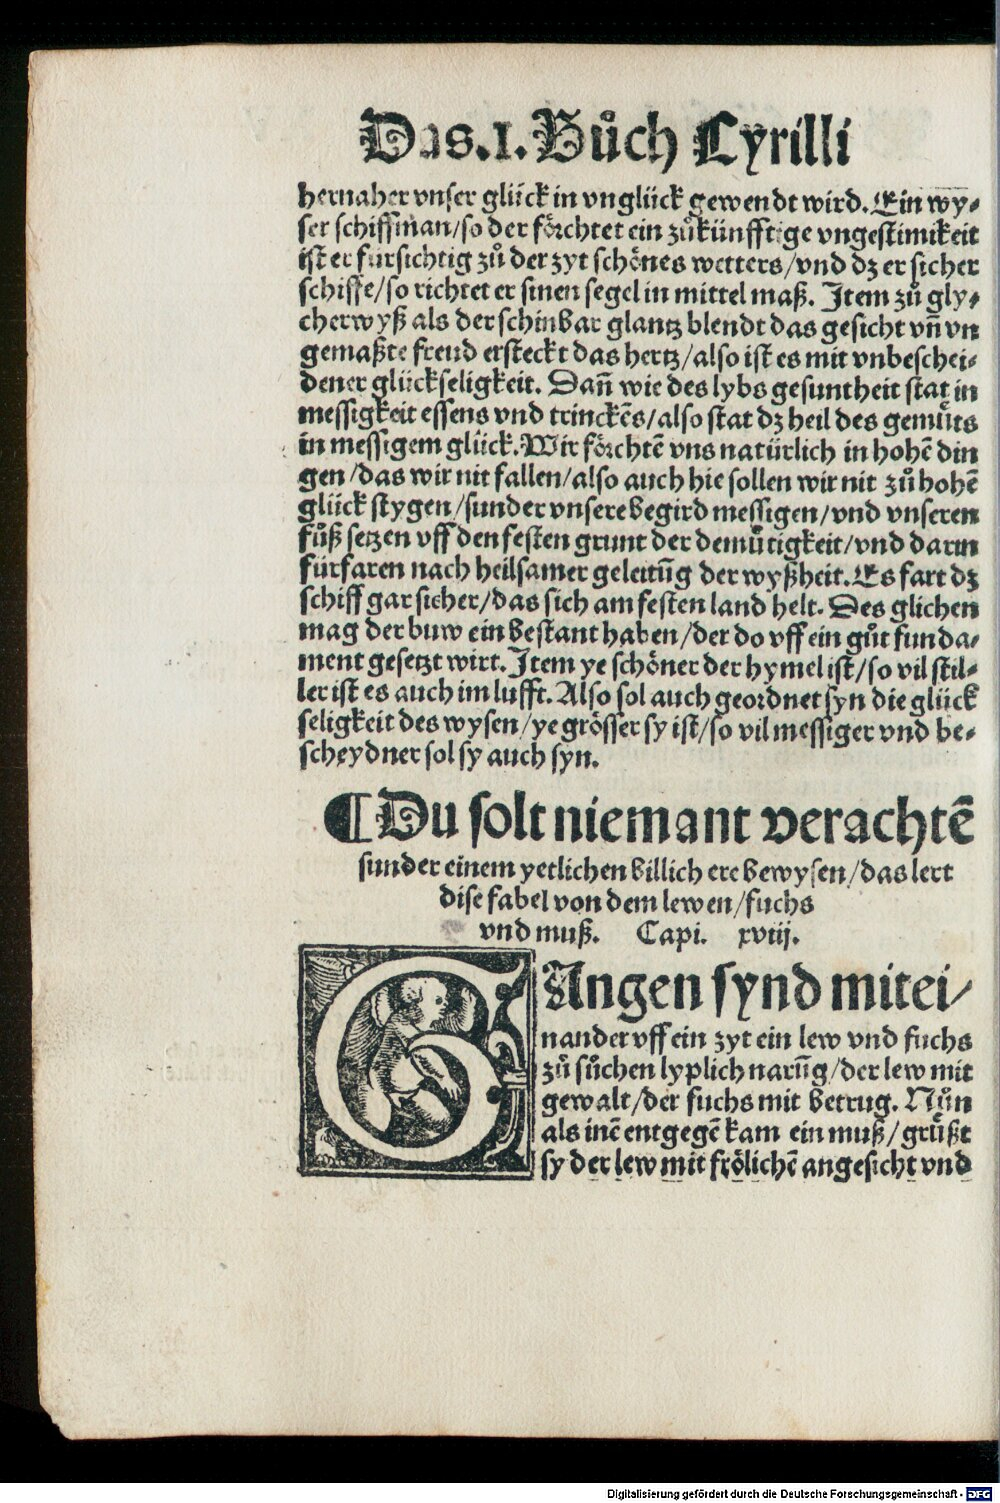 Das.I.Bůch Cyrilli
hernaher vnser glück in vnglück gewendt wird. Ein wy⸗
ser schiffman/so der förchtet ein zůkünfftige vngestimikeit
ist er fürsichtig zů der zyt schönes wetters/vnd dz er sicher
schiffe/so richtet er sinen segel in mittel maß. Item zů gly⸗
cherwyß als der schinbar glantz blendt das gesicht vñ vn
gemaßte freud ersteckt das hertz/also ist es mit vnbeschei⸗
dener glückseligkeit. Dañ wie des lybs gesuntheit stat in
messigkeit essens vnd trinckēs/also stat dz heil des gemůts
in messigem glück. Wir förchtē vns natürlich in hohē din
gen/das wir nit fallen/also auch hie sollen wir nit zů hohē
glück stygen/sunder vnsere begird messigen/vnd vnseren
fůß setzen vff den festen grunt der demůtigkeit/vnd darin
fürfaren nach heilsamer geleitũg der wyßheit. Es fart dz
schiff gar sicher/das sich am festen land helt. Des glichen
mag der buw ein bestant haben/der do vff ein gůt funda⸗
ment gesetzt wirt. Item ye schöner der hymel ist/so vil stil⸗
ler ist es auch im lufft. Also sol auch geordnet syn die glück
seligkeit des wysen/ye grösser sy ist/so vil messiger vnd be⸗
scheydner sol sy auch syn.
¶Du solt niemant verachtē
sunder einem yetlichen billich ere bewysen/das lert
dise fabel von dem lewen/fuchs
vnd muß. Capi. xviij.
GAngen synd mitei/
nander vff ein zyt ein lew vnd fuchs
zů sůchen lyplich narũg/der lew mit
gewalt/der fuchs mit betrug. Nůn
als inē entgegē kam ein muß/grůßt
sy der lew mit frölichē angesicht vnd
Digitalisierung gefördert durch die Deutsche Forschungsgemeinschaft - DFG